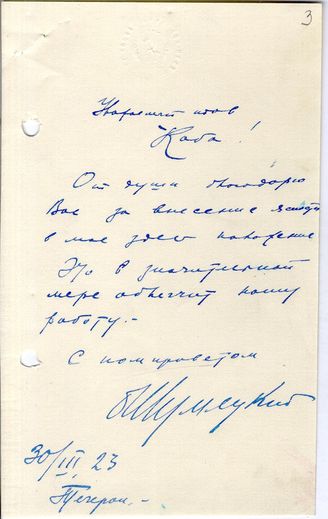 3
Уважаемый тов
Коба!
От души благодарю
Вас за внесение ясности
в мое здесь положение
Это в значительной
мере облегчит нашу
работу.-
С комприветом
БШумяцкий
30/III 23
Тегеран.-